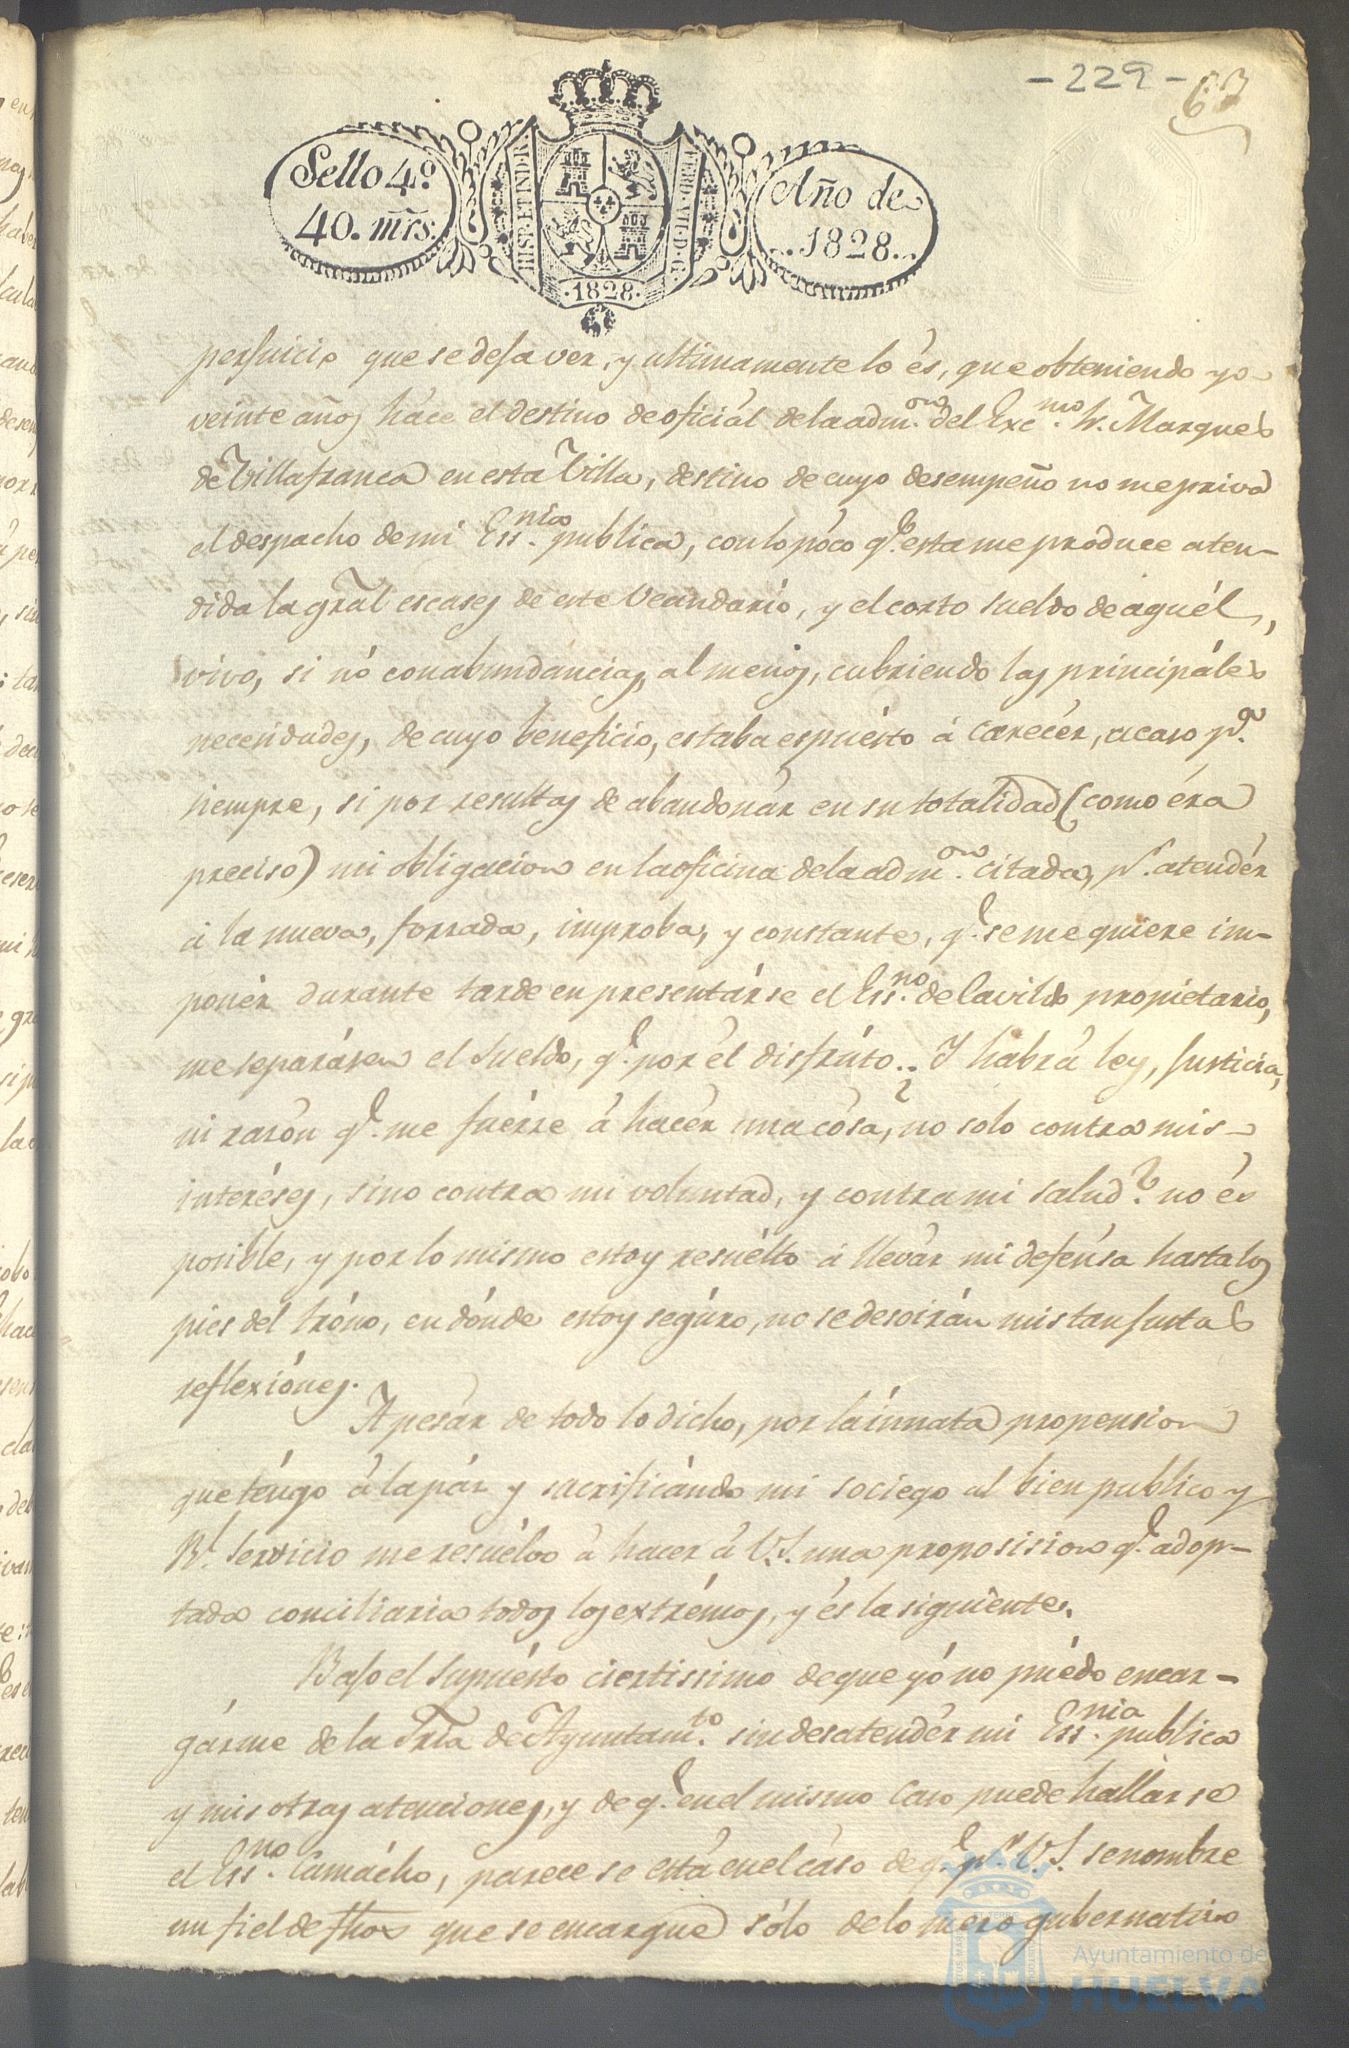 -229- 63
Sello 4º.
40. mrs.
HISP. ET IND. R.
FERD. VII. D. G.
.1828.
Año de
..1828..
perjuicio que se deja ver, y ultimamente lo és, que obteniendo yo
veinte años háce el destino de oficiál de la adm.on del Exc.mo Sr. Marqués
de Villafranca en esta Villa, destino de cuyo desempeño no me priva
el despacho de mi Ess.nia publica, con lo póco q.e esta me prodúce aten-
dida la grãl escases de este Vecindario, y el corto sueldo de aquél,
vivo, si nó con abundáncias, al menos, cubriendo las principáles
necesidades, de cuyo beneficio, estaba espuésto á carecér, acaso p.a
siempre, si por resultas de abandonár en su totalidad (como éra
preciso) mi obligacion en la oficina de la adm.on citada, p.r atendér
á la nueva, forzada, improba, y constante, q.e se me quiere im-
ponér durante tarde en presentárse el Ess.no de Cavildo propietario,
me separásen el sueldo, q.e por él disfrúto.. Y habrá ley, Justicia,
ni razón q.e me fuérze á hacér una cósa, no solo contra mis
interéses, sino contra mi voluntad, y contra mi salud? no és
posible, y por lo mismo estoy resuélto á llevár mi defénsa hasta los
pies del tróno, en dónde estoy segúro, no se desoirán mis tan justas
reflexiónes.
Apesár de todo lo dicho, por la ínnata propension
que téngo á la páz y sacrificándo mi sociego al bien publico y
Rl. Servicio me resuélvo á hacer á V.S. una proposision q.e adop-
tada conciliaria todos los extrémos, y és la siguiente.
Bajo el supuésto ciertissimo de que yó no puédo encar-
gárme de la Sria de Ayuntam.to sin desatendér mi Ess.nia publica
y mis otras atenciones, y de q.e en el mismo caso puede hallárse
el Ess.no Camácho, parece se está en el cáso de q.e p.r V.S. se nombre
un fiel de fhos que se encargue sólo de lo mero gubernativo
Ayuntamiento de
HUELVA